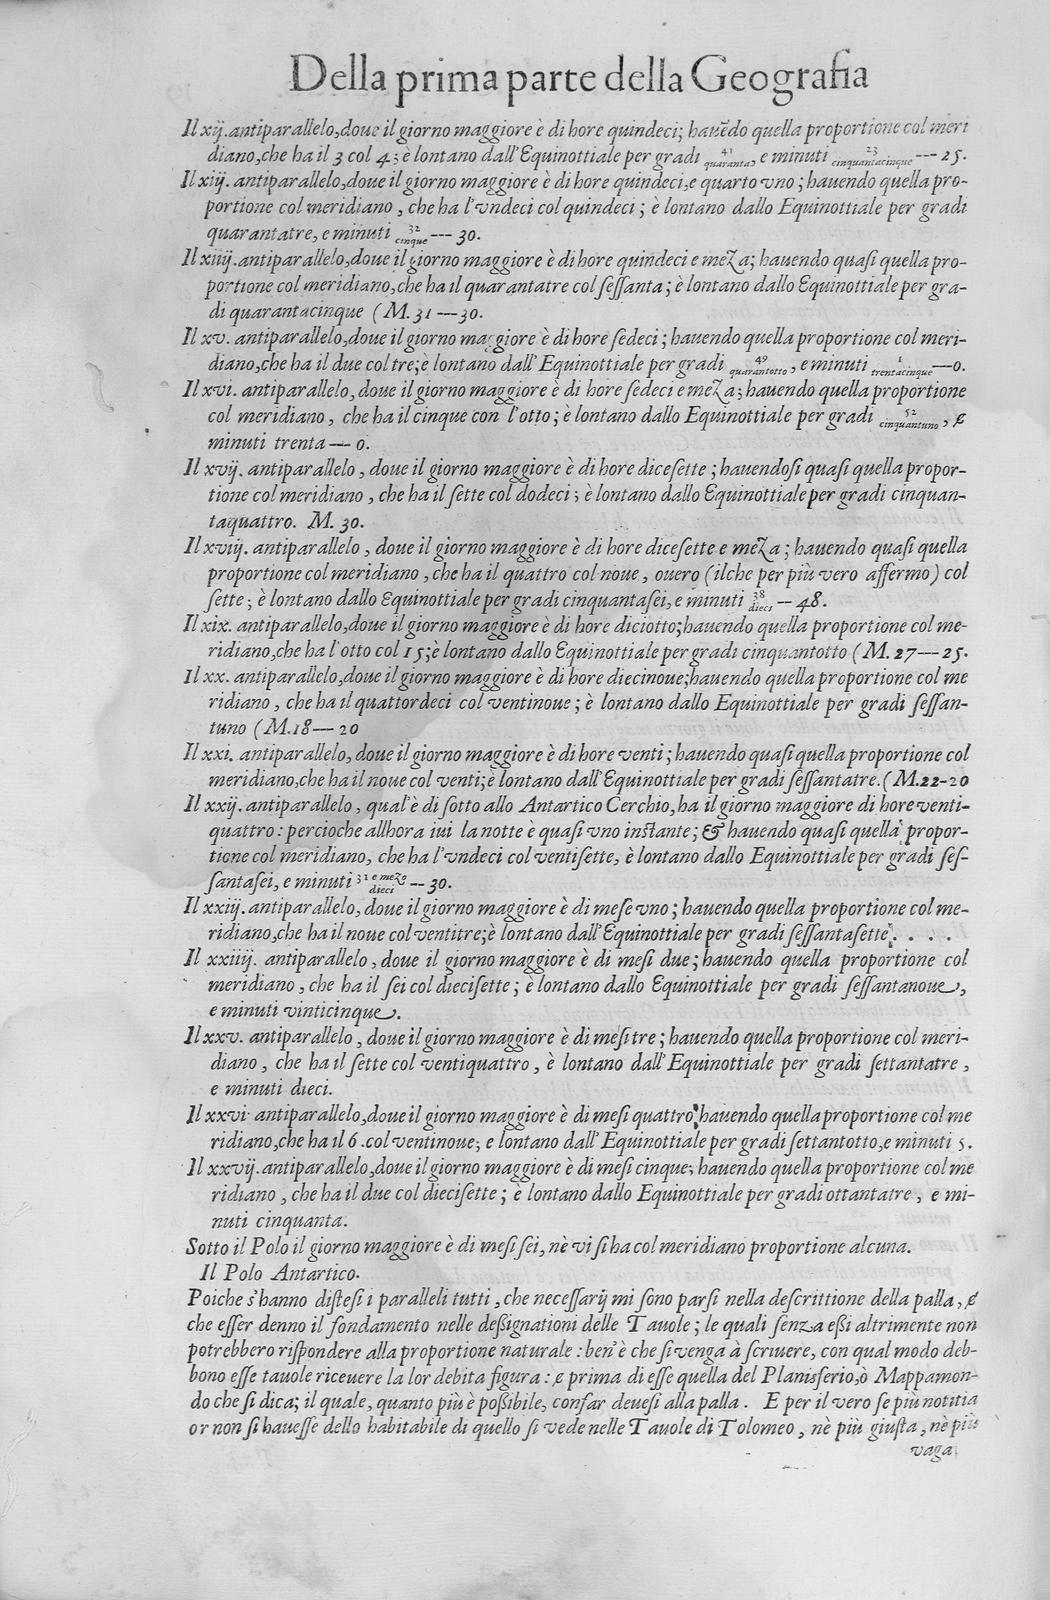 Della prima parte della Geografia
Il xij. antiparallelo, doue il giorno maggiore è di hore quindeci; hauẽdo quella proportione col meri
diano, che ha il 3 col 4; è lontano dall'Equinottiale per gradi 41 quaranta, e minuti 23 cinquantacinque --- 25.
Il xiij. antiparallelo, doue il giorno maggiore è di hore quindeci, e quarto vno; hauendo quella pro-
portione col meridiano, che ha l'vndeci col quindeci; è lontano dallo Equinottiale per gradi
quarantatre, e minuti 32 cinque --- 30.
Il xiiij. antiparallelo, doue il giorno maggiore è di hore quindeci e meza; hauendo quasi quella pro-
portione col meridiano, che ha il quarantatre col seſſanta; è lontano dallo Equinottiale per gra-
di quarantacinque (M. 31 --- 30.
Il xv. antiparallelo, doue il giorno maggiore è di hore sedeci; hauendo quella proportione col meri-
diano, che ha il due col tre; è lontano dall'Equinottiale per gradi 49 quarantotto, e minuti 1 trentacinque --- 0.
Il xvi. antiparallelo, doue il giorno maggiore è di hore sedeci e meza; hauendo quella proportione
col meridiano, che ha il cinque con l'otto; è lontano dallo Equinottiale per gradi 52 cinquantuno, &
minuti trenta --- 0.
Il xvij. antiparallelo, doue il giorno maggiore è di hore diceſette; hauendoſi quaſi quella propor-
tione col meridiano, che ha il ſette col dodeci; è lontano dallo Equinottiale per gradi cinquan-
taquattro. M. 30.
Il xviij. antiparallelo, doue il giorno maggiore è di hore diceſette e meza; hauendo quaſi quella
proportione col meridiano, che ha il quattro col noue, ouero (ilche per più vero affermo) col
ſette; è lontano dallo Equinottiale per gradi cinquantaſei, e minuti 38 dieci -- 48.
Il xix. antiparallelo, doue il giorno maggiore è di hore diciotto; hauendo quella proportione col me-
ridiano, che ha l'otto col 15; è lontano dallo Equinottiale per gradi cinquantotto (M. 27 --- 25.
Il xx. antiparallelo, doue il giorno maggiore è di hore diecinoue; hauendo quella proportione col me
ridiano, che ha il quattordeci col ventinoue; è lontano dallo Equinottiale per gradi ſeſſan-
tuno (M. 18 --- 20
Il xxi. antiparallelo, doue il giorno maggiore è di hore venti; hauendo quaſi quella proportione col
meridiano, che ha il noue col venti; è lontano dall'Equinottiale per gradi ſeſſantatre. (M. 22-20
Il xxij. antiparallelo, qual'è di ſotto allo Antartico Cerchio, ha il giorno maggiore di hore venti-
quattro: percioche allhora iui la notte è quaſi vno inſtante; & hauendo quaſi quella propor-
tione col meridiano, che ha l'vndeci col ventiſette, è lontano dallo Equinottiale per gradi ſeſ-
ſantaſei, e minuti 31 e mezo dieci -- 30.
Il xxiij. antiparallelo, doue il giorno maggiore è di meſe vno; hauendo quella proportione col me-
ridiano, che ha il noue col ventitre; è lontano dall'Equinottiale per gradi ſeſſantaſette. . . .
Il xxiiij. antiparallelo, doue il giorno maggiore è di meſi due; hauendo quella proportione col
meridiano, che ha il ſei col dieciſette; è lontano dallo Equinottiale per gradi ſeſſantanoue,
e minuti vinticinque.
Il xxv. antiparallelo, doue il giorno maggiore è di meſi tre; hauendo quella proportione col meri-
diano, che ha il ſette col ventiquattro, è lontano dall'Equinottiale per gradi ſettantatre,
e minuti dieci.
Il xxvi antiparallelo, doue il giorno maggiore è di meſi quattro; hauendo quella proportione col me
ridiano, che ha il 6. col ventinoue; e lontano dall'Equinottiale per gradi ſettantotto, e minuti 5.
Il xxvij. antiparallelo, doue il giorno maggiore è di meſi cinque; hauendo quella proportione col me
ridiano, che ha il due col dieciſette; è lontano dallo Equinottiale per gradi ottantatre, e mi-
nuti cinquanta.
Sotto il Polo il giorno maggiore è di meſi ſei, nè vi ſi ha col meridiano proportione alcuna.
Il Polo Antartico.
Poiche s'hanno diſteſi i paralleli tutti, che neceſſarij mi ſono parſi nella deſcrittione della palla, &
che eſſer denno il fondamento nelle deßignationi delle Tauole; le quali ſenza eßi altrimente non
potrebbero riſpondere alla proportione naturale: ben'è che ſi venga à ſcriuere, con qual modo deb-
bono eſſe tauole riceuere la lor debita figura: & prima di eſſe quella del Planisferio, ò Mappamon-
do che ſi dica; il quale, quanto più è poßibile, confar deueſi alla palla. E per il vero ſe più notitia
or non ſi haueſſe dello habitabile di quello ſi vede nelle Tauole di Tolomeo, nè più giuſta, nè più
vaga